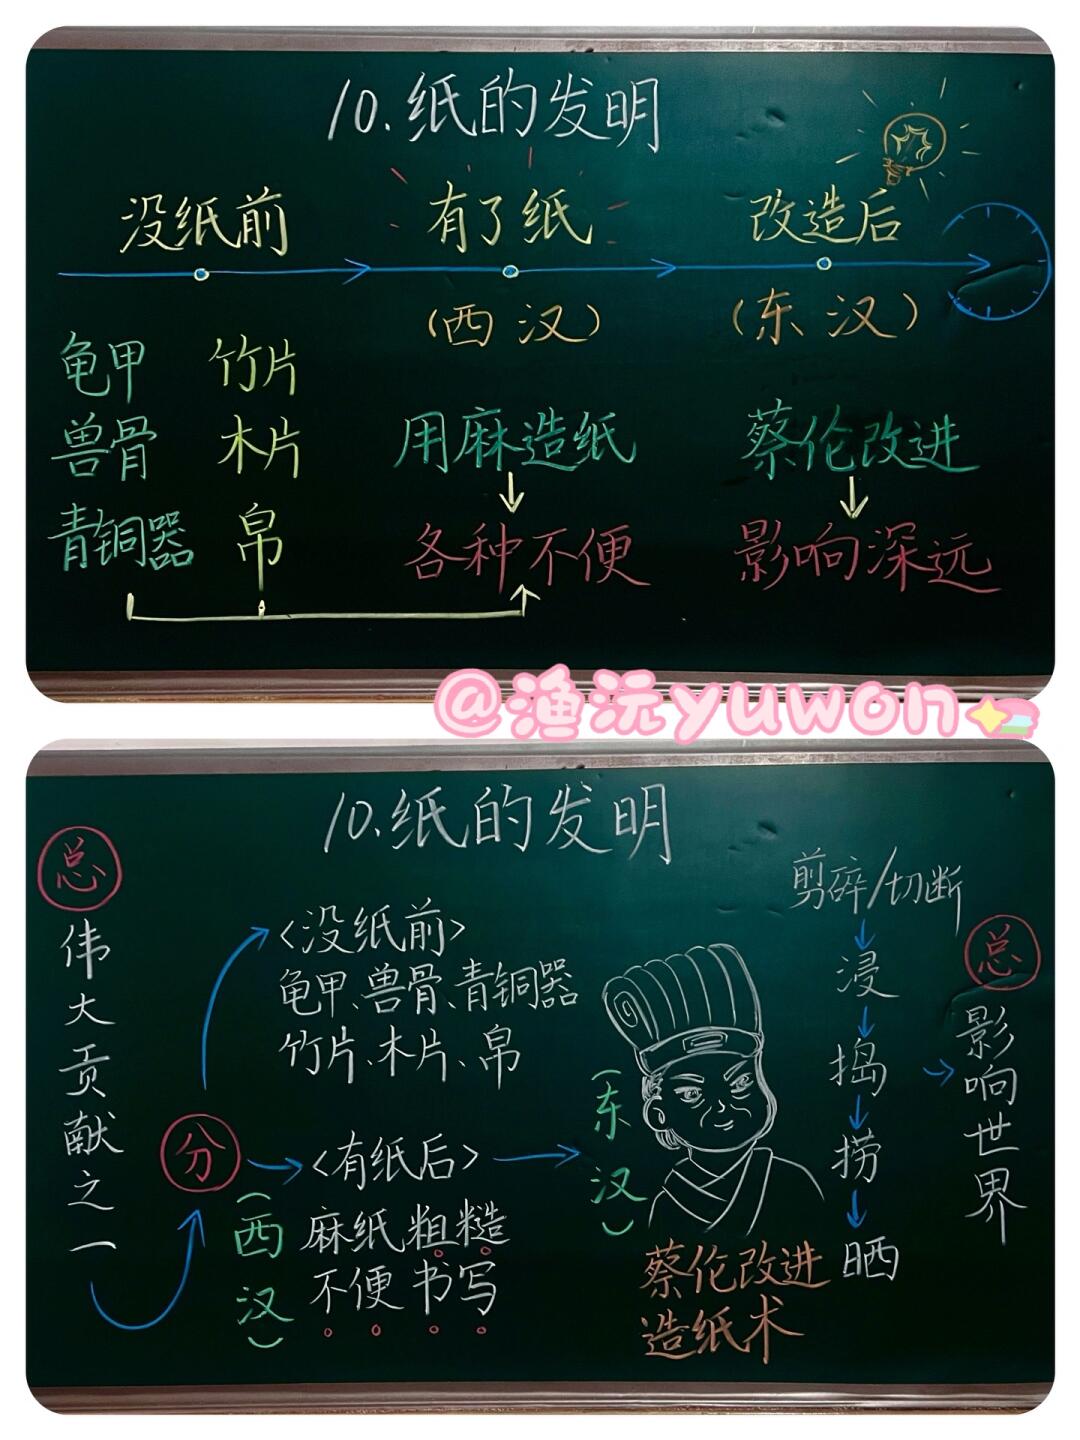 10.纸的发明
没纸前 有了纸 改造后
(西汉) (东汉)
龟甲 竹片
兽骨 木片
青铜器 帛
用麻造纸
各种不便
蔡伦改进
影响深远
@渔沅yuwon
10.纸的发明
总
伟大贡献之一
分
<没纸前>
龟甲、兽骨、青铜器
竹片、木片、帛
<有纸后>
(西汉)
麻纸粗糙
不便书写
(东汉)
蔡伦改进
造纸术
剪碎/切断
浸
捣
捞
晒
总
影响世界